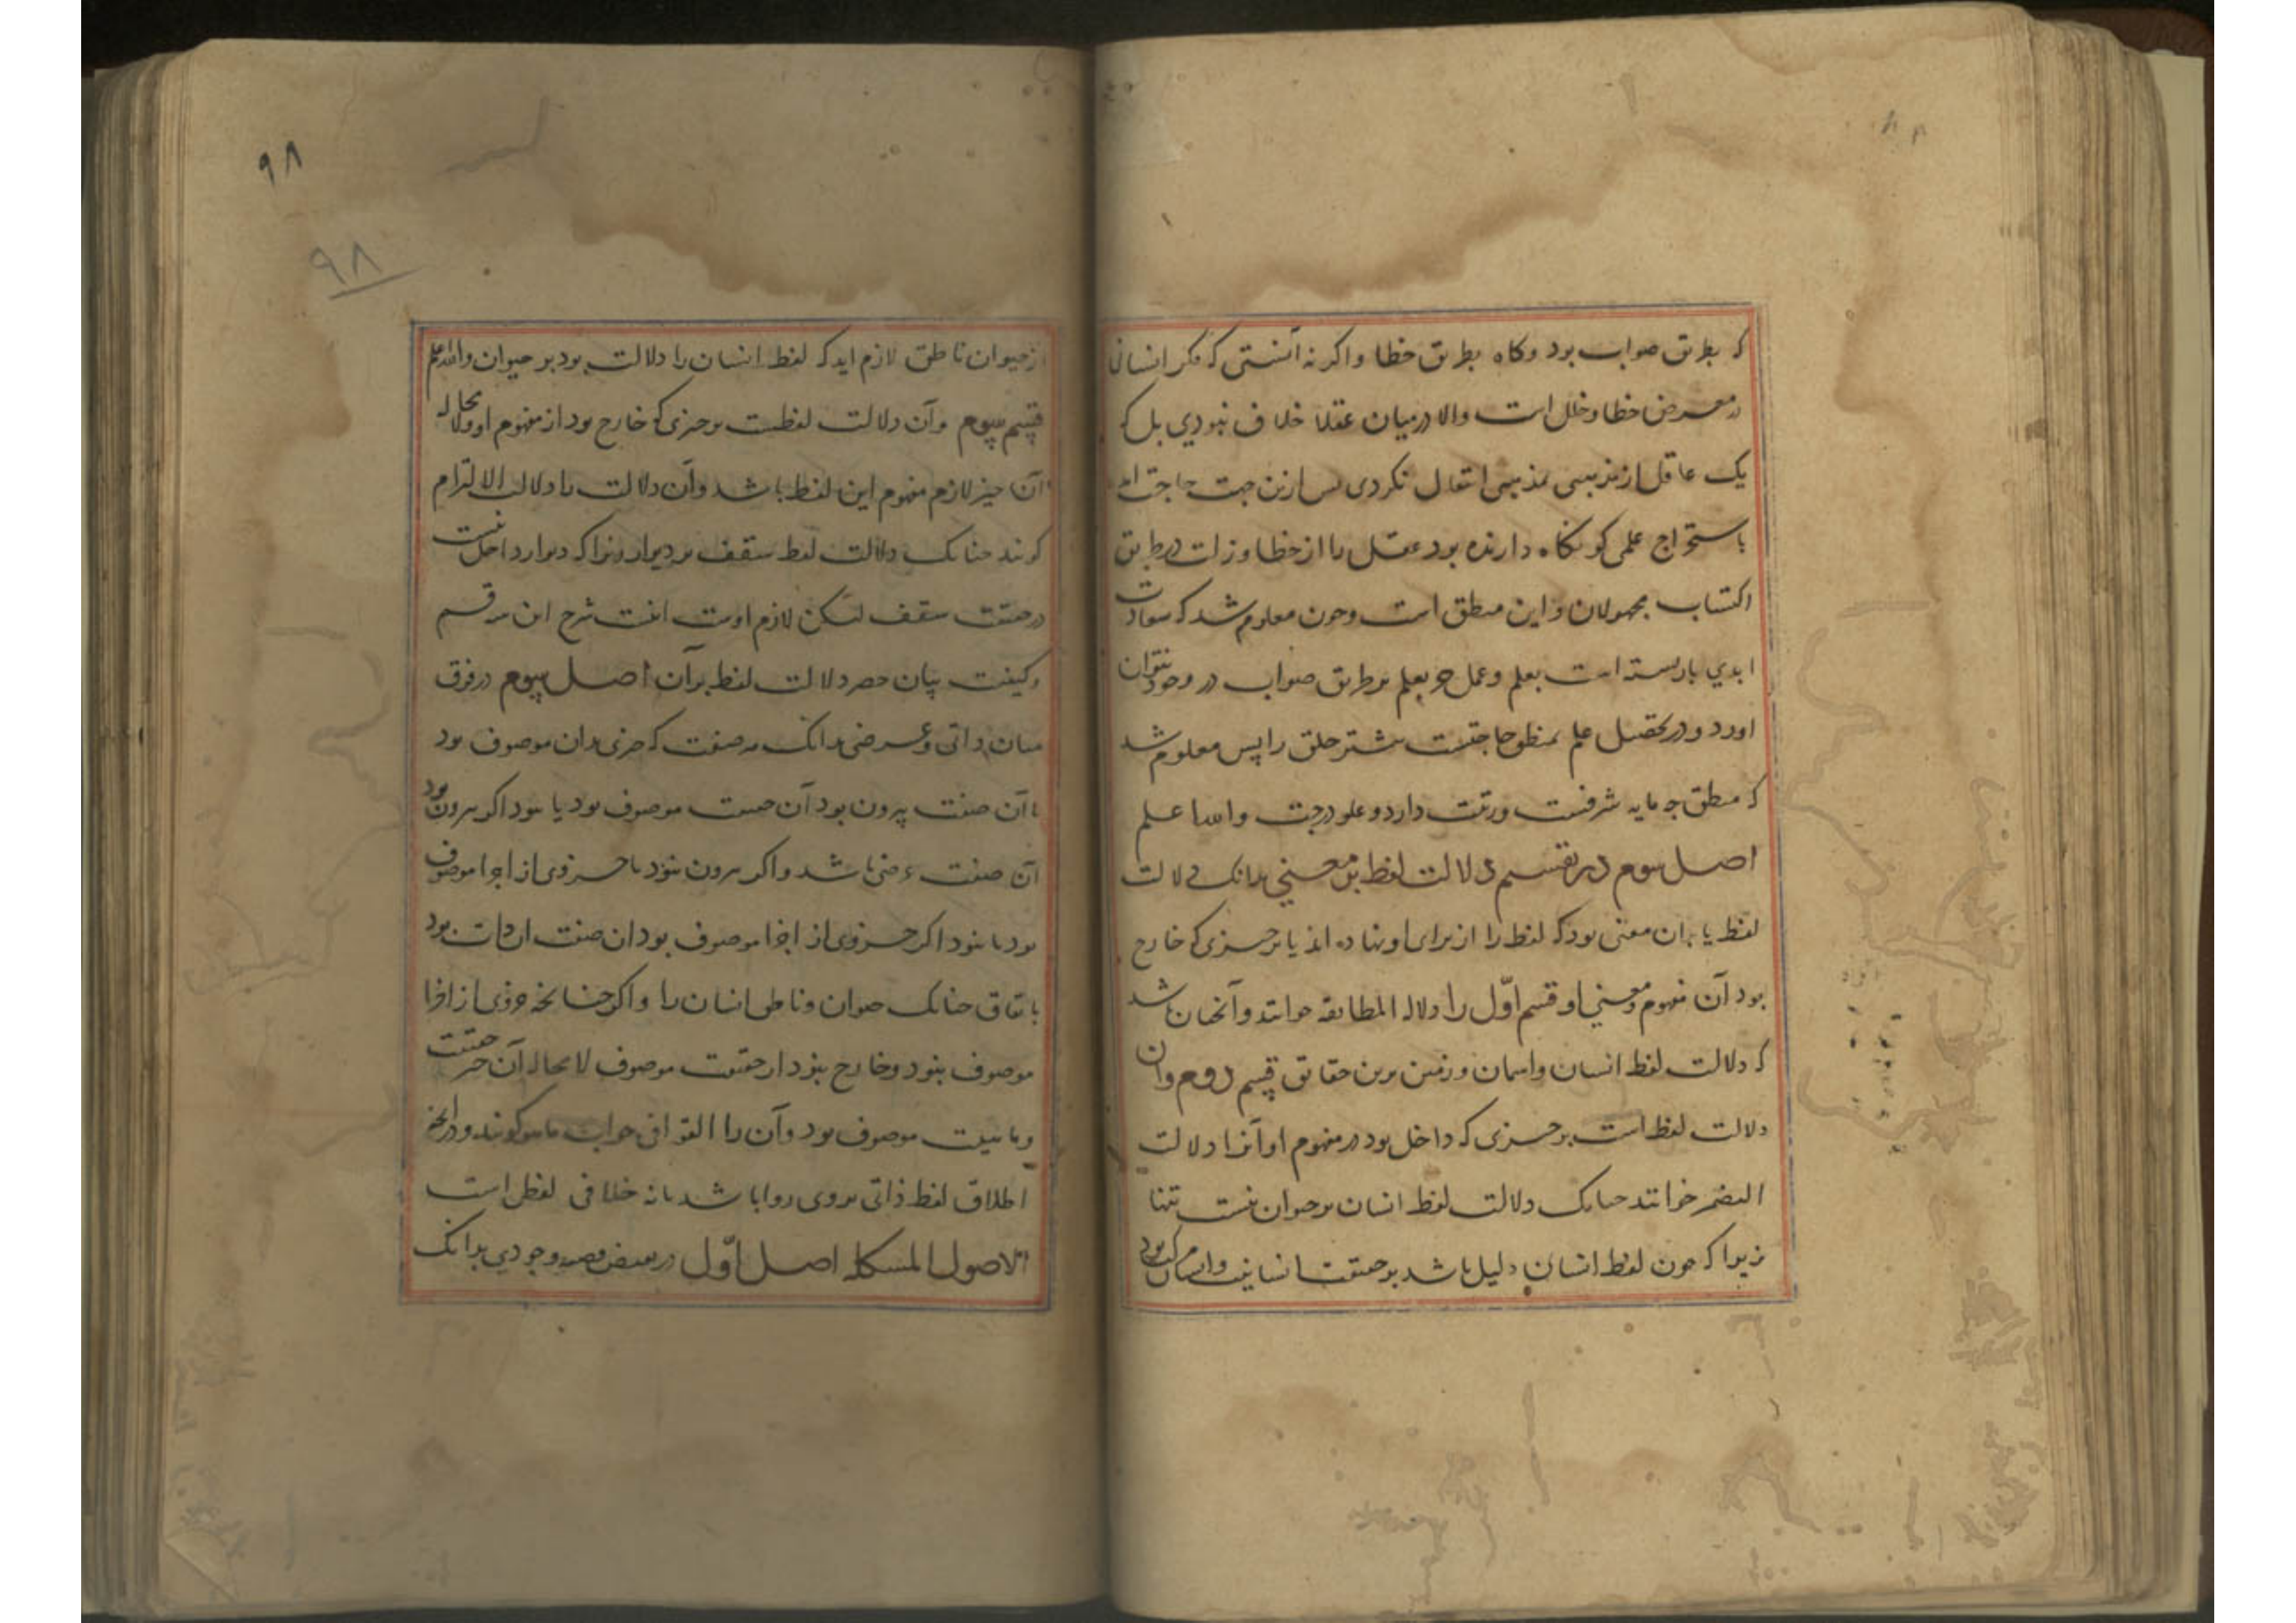 که بطریق صواب بود وکاه بطریق خطا واکر نه آنستی که فکر انسانی
در معرض خطا وخلل است والا درمیان عقلا خلاف نبودی بل که
یک عاقل از مذهبی بمذهبی انتقال نکردی پس ازین جهت حاجت امد
باستخراج علمی کو نکاه دارنده بود عقل را از خطا وزلت در طریق
اکتساب مجهولان واین منطق است وچون معلوم شد که سعادت
ابدی بازبسته است بعلم وعمل وعلم بر طریق صواب در وجود نتوان
اورد ودر تحصیل علم بمنطق حاجتست بیشتر خلق را پس معلوم شد
که منطق چه مایه شرفست ورتبت دارد وعلو درجت والله اعلم
اصل سوم در تقسیم دلالت لفظ بر معنی بدانک دلالت
لفظ یا بران معنی بود که لفظ را از برای او نهاده اند یا بر چیزی که خارج
بود آن مفهوم ومعنی او قسم اوّل را دلالة المطابقه خوانند وآنچنان باشد
که دلالت لفظ انسان واسمان وزمین برین حقایق قسم دوم وان
دلالت لفظ است بر چیزی که داخل بود در مفهوم او آنرا دلالت
التضمر خوانند چنانک دلالت لفظ انسان بر حیوان نیست تنها
زیرا که چون لفظ انسان دلیل باشد بر حقیقت انسانیت وانسان مرکب بود
۹۸
۹۸
از حیوان ناطق لازم اید که لفظ انسان را دلالت بود بر حیوان والله اعلم
قسم سوم وآن دلالت لفظست بر چیزی که خارج بود از مفهوم او ولا محاله
آن چیز لازم مفهوم این لفظ باشد وآن دلالت را دلالت الالتزام
کویند چنانک دلالت لفظ سقف بر دیوار زیرا که دیوار داخل نیست
در حقیقت سقف لیکن لازم اوست اینست شرح این سه قسم
وکیفیت بیان حصر دلالت لفظ بران اصل سوم در فرق
میان ذاتی وعرضی بدانک هر صفت که چیزی بدان موصوف بود
یا آن صفت بیرون بود آن حقیقت موصوف بود یا نبود اکر بیرون بود
آن صفت عرضی باشد واکر بیرون نبود یا جزوی از اجزا موصوف
بود یا نبود اکر جزوی از اجزا موصوف بود ان صفت ان ذات بود
باتفاق چنانک حیوان وناطق انسان را واکر چنانچه جزوی از اجزا
موصوف نبود وخارج نبود از حقیقت موصوف لامحاله آن چیز حقیقت
وماهیت موصوف بود وآن را القو افی جواب ماهو کویند ودر آنچه
اطلاق لفظ ذاتی بر وی روا باشد یا نه خلافی لفظی است
الاصول المشکله اصل اوّل در وجودی بدانک